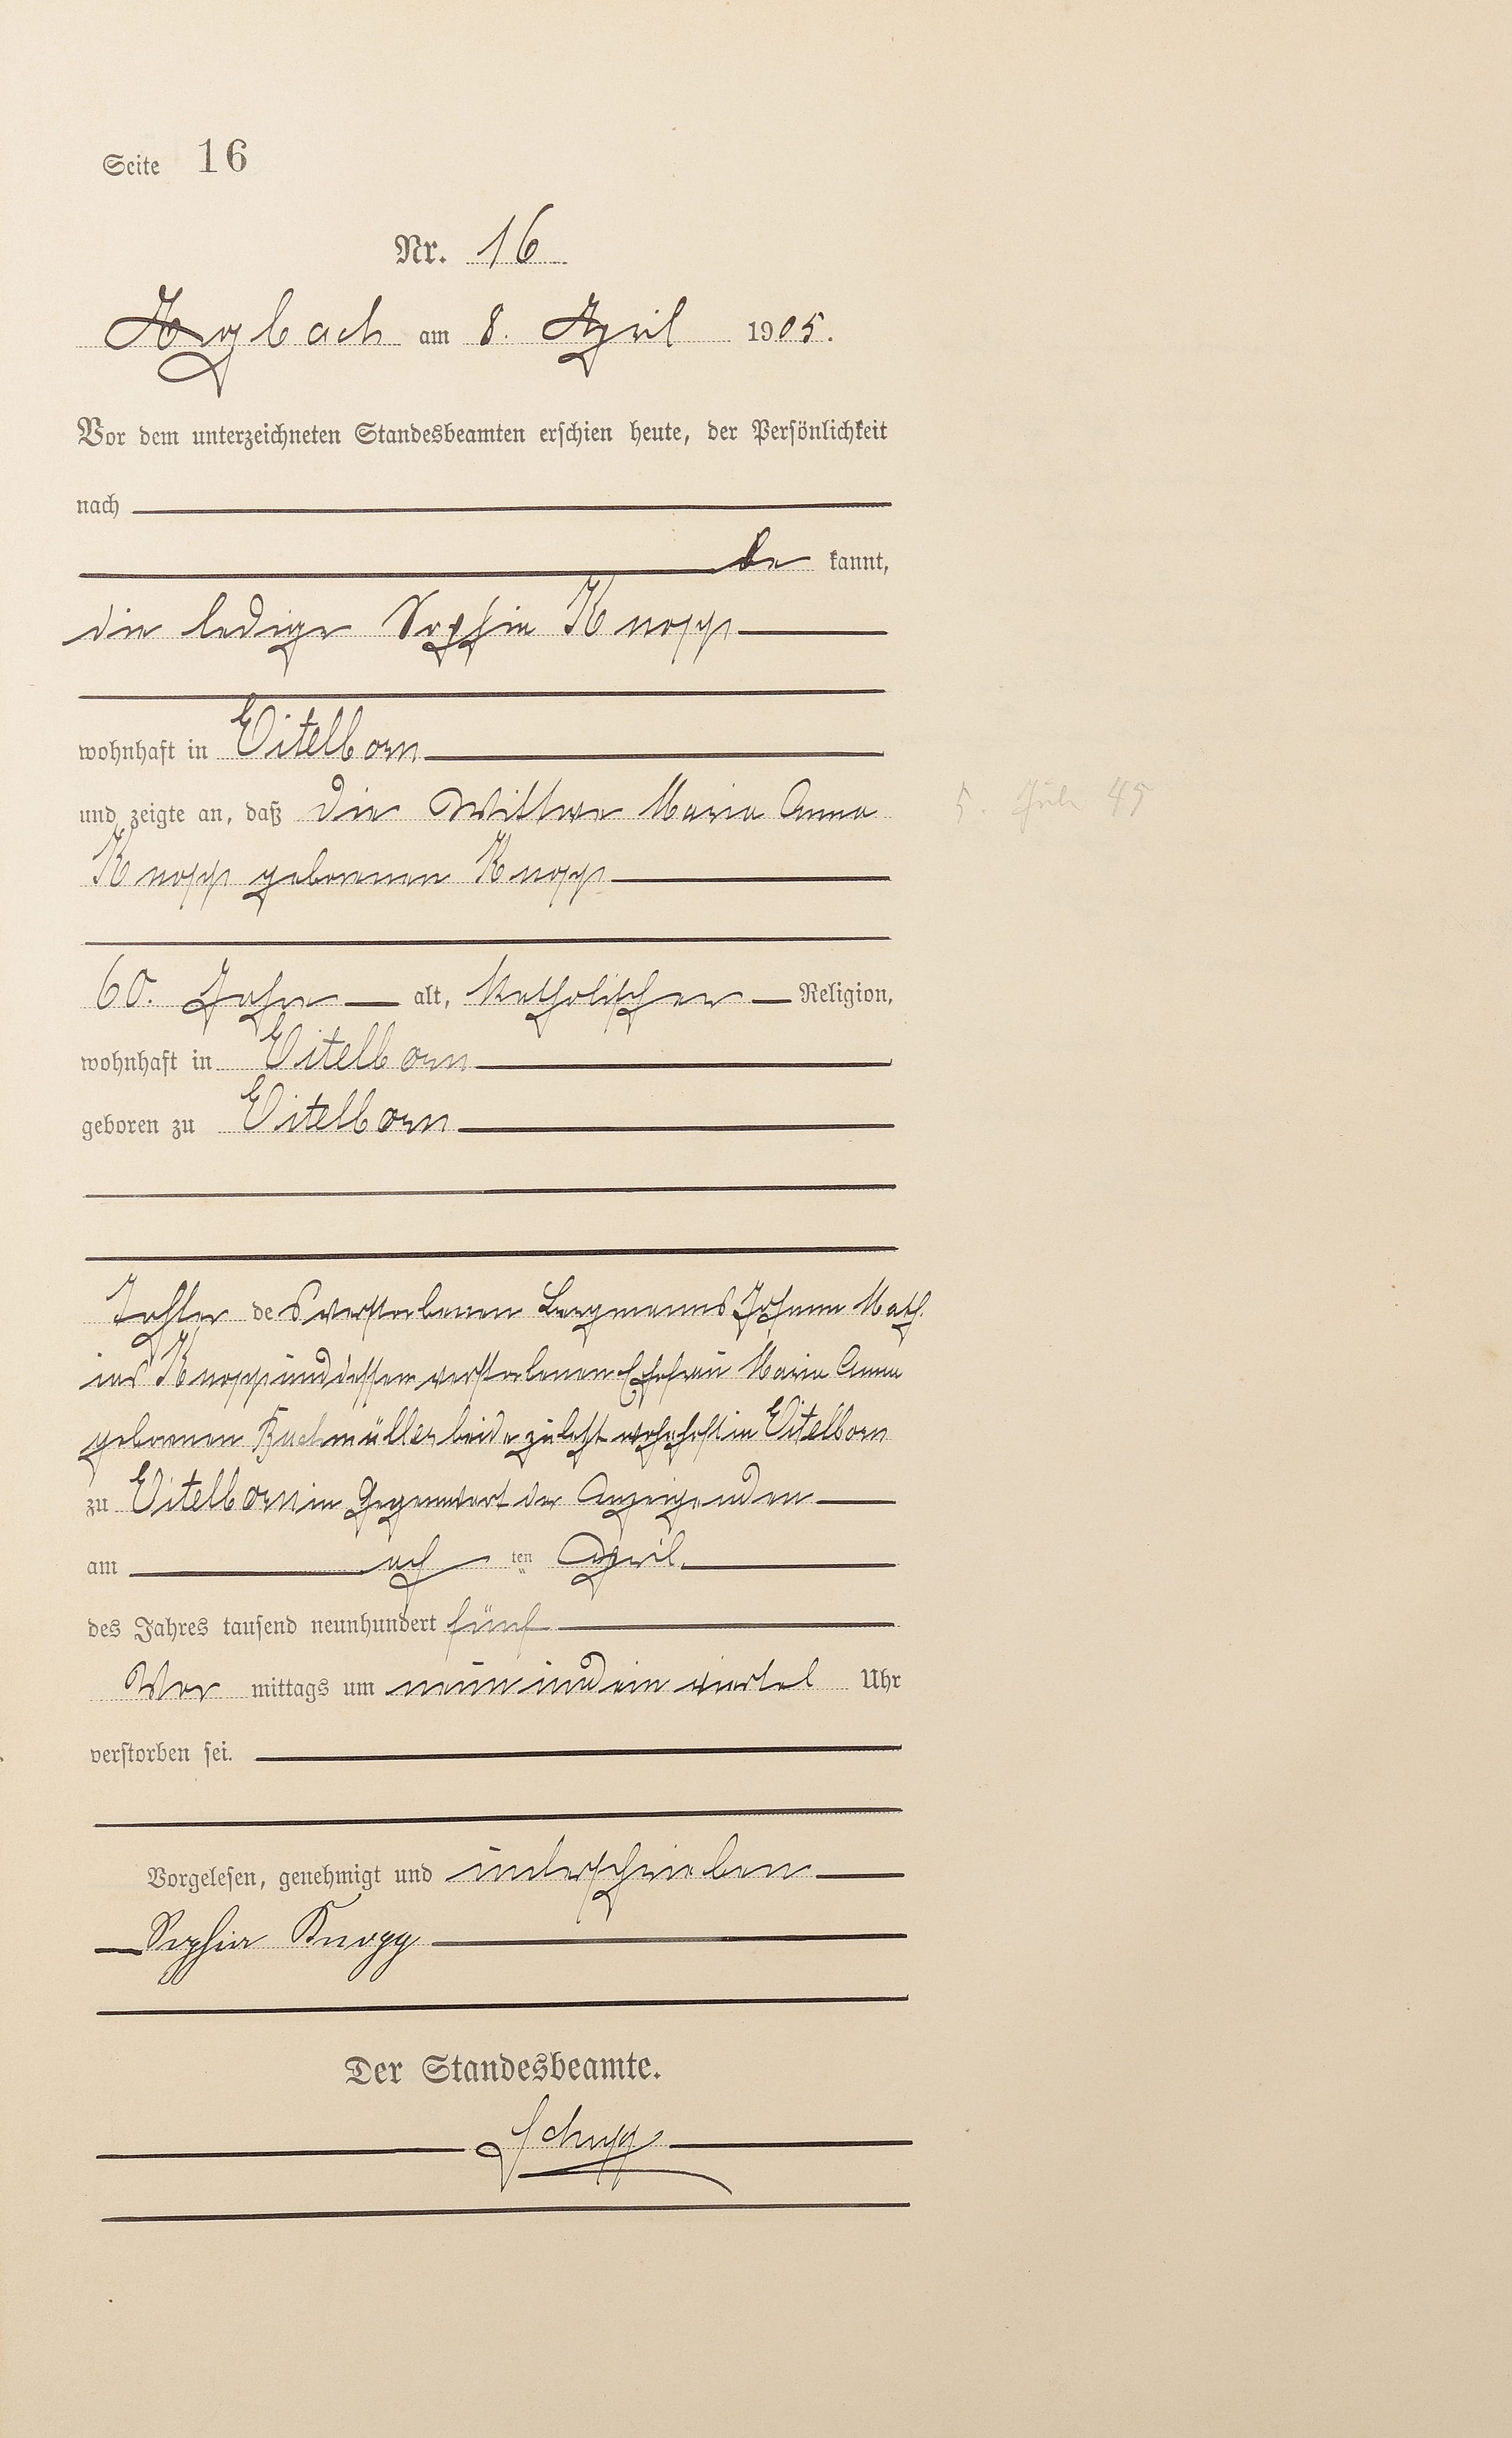 Seite 16
Nr. 16
Arzbach am 8. April 1905.
Vor dem unterzeichneten Standesbeamten erschien heute, der Persönlichkeit
nach
be kannt,
die ledige Sophia Knopp
wohnhaft in Eitelborn
und zeigte an, daß die Wittwe Maria Anna
Knopp geborenen Knopp
60. Jahre alt, katholischer Religion,
wohnhaft in Eitelborn
geboren zu Eitelborn
Tochter des verstorbenen Bergmanns Johann Math.
ias Knopp und dessen verstorbenen Ehefrau Maria Anna
geborenen Buchmüller beide zuletzt wohnhaft in Eitelborn
zu Eitelborn in Gegenwart der Anzeigenden
am ach ten April
des Jahres tausend neunhundert fünf
Vor mittags um neun und ein viertel Uhr
verstorben sei.
Vorgelesen, genehmigt und unterschrieben
Sophia Knopp
Der Standesbeamte.
Schupp
5. Juli 45